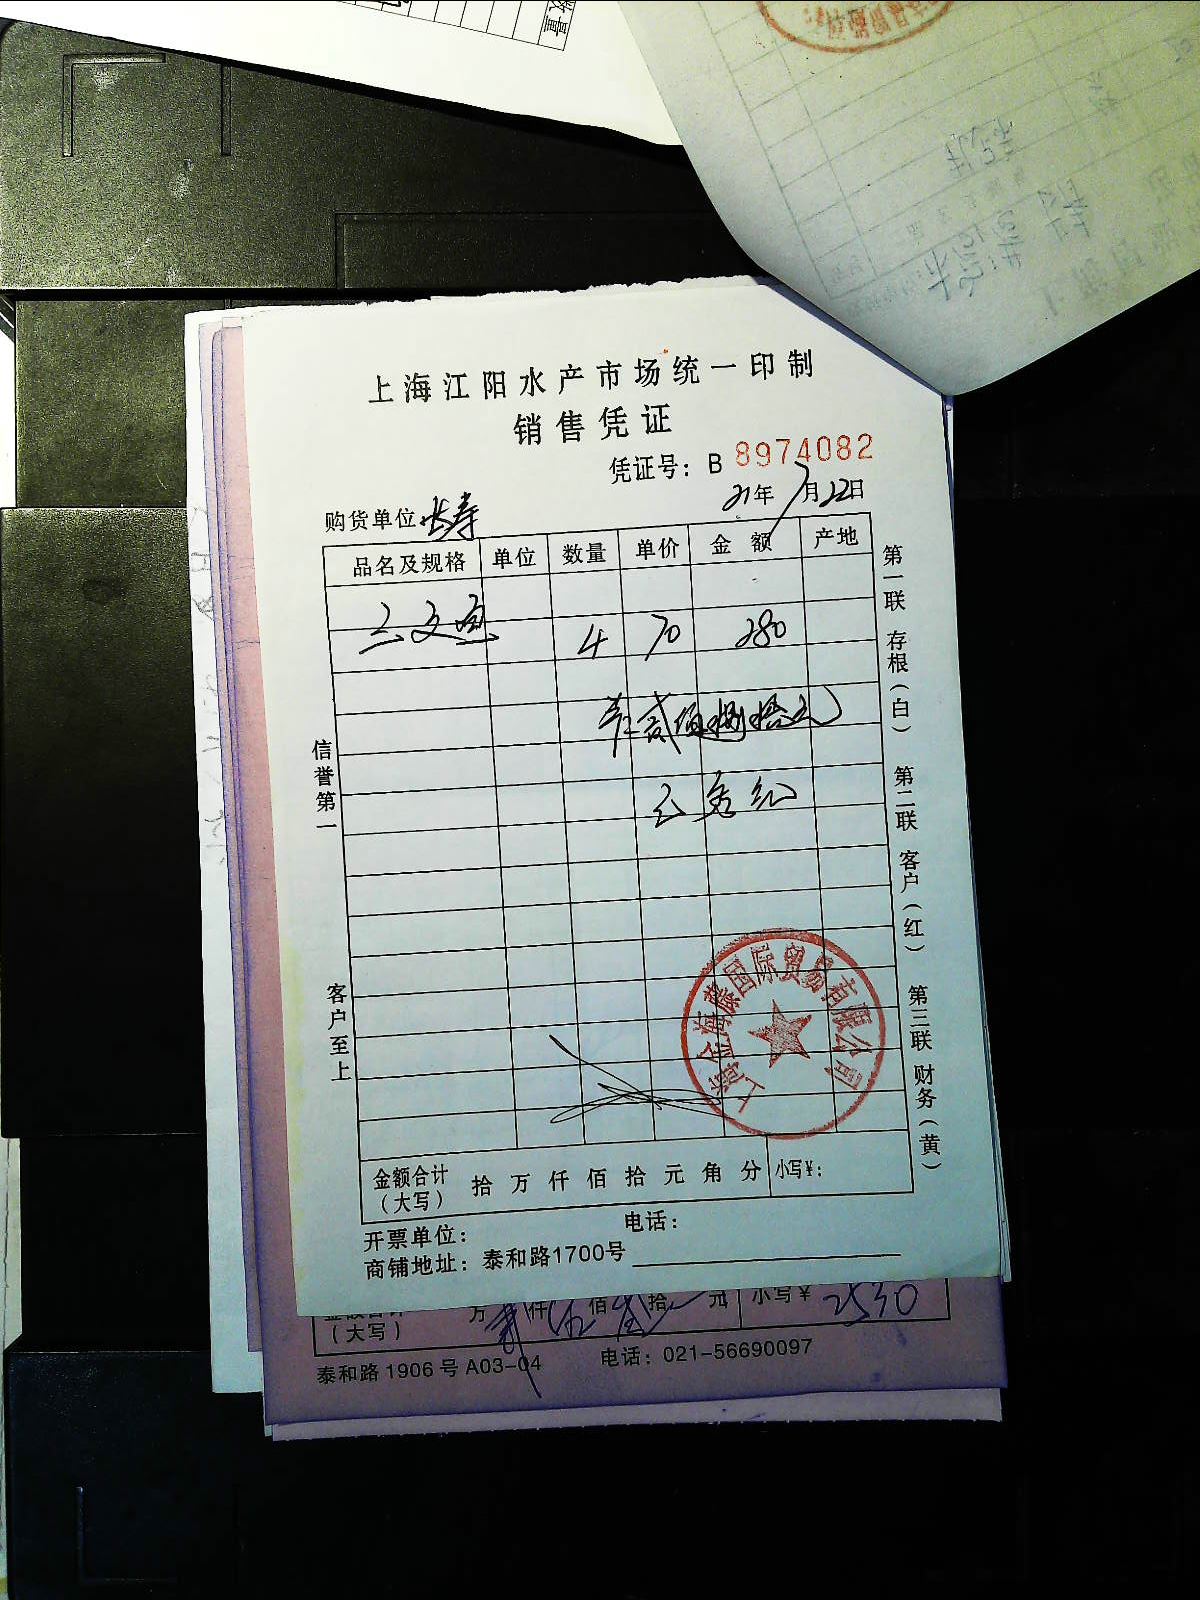 数量
上海江阳水产市场统一印制
销售凭证
凭证号：B 8974082
21年7月22日
购货单位 长寿
品名及规格 单位 数量 单价 金额 产地
三文鱼 4 70 280
贰佰捌拾元
信誉第一
客户至上
第一联 存根（白） 第二联 客户（红） 第三联 财务（黄）
国际贸易有限公司
金额合计（大写） 拾 万 仟 佰 拾 元 角 分 小写¥：
开票单位： 电话：
商铺地址：泰和路1700号
（大写） 万 仟 佰 拾 元 小写¥ 2530
泰和路1906号A03-04 电话：021-56690097